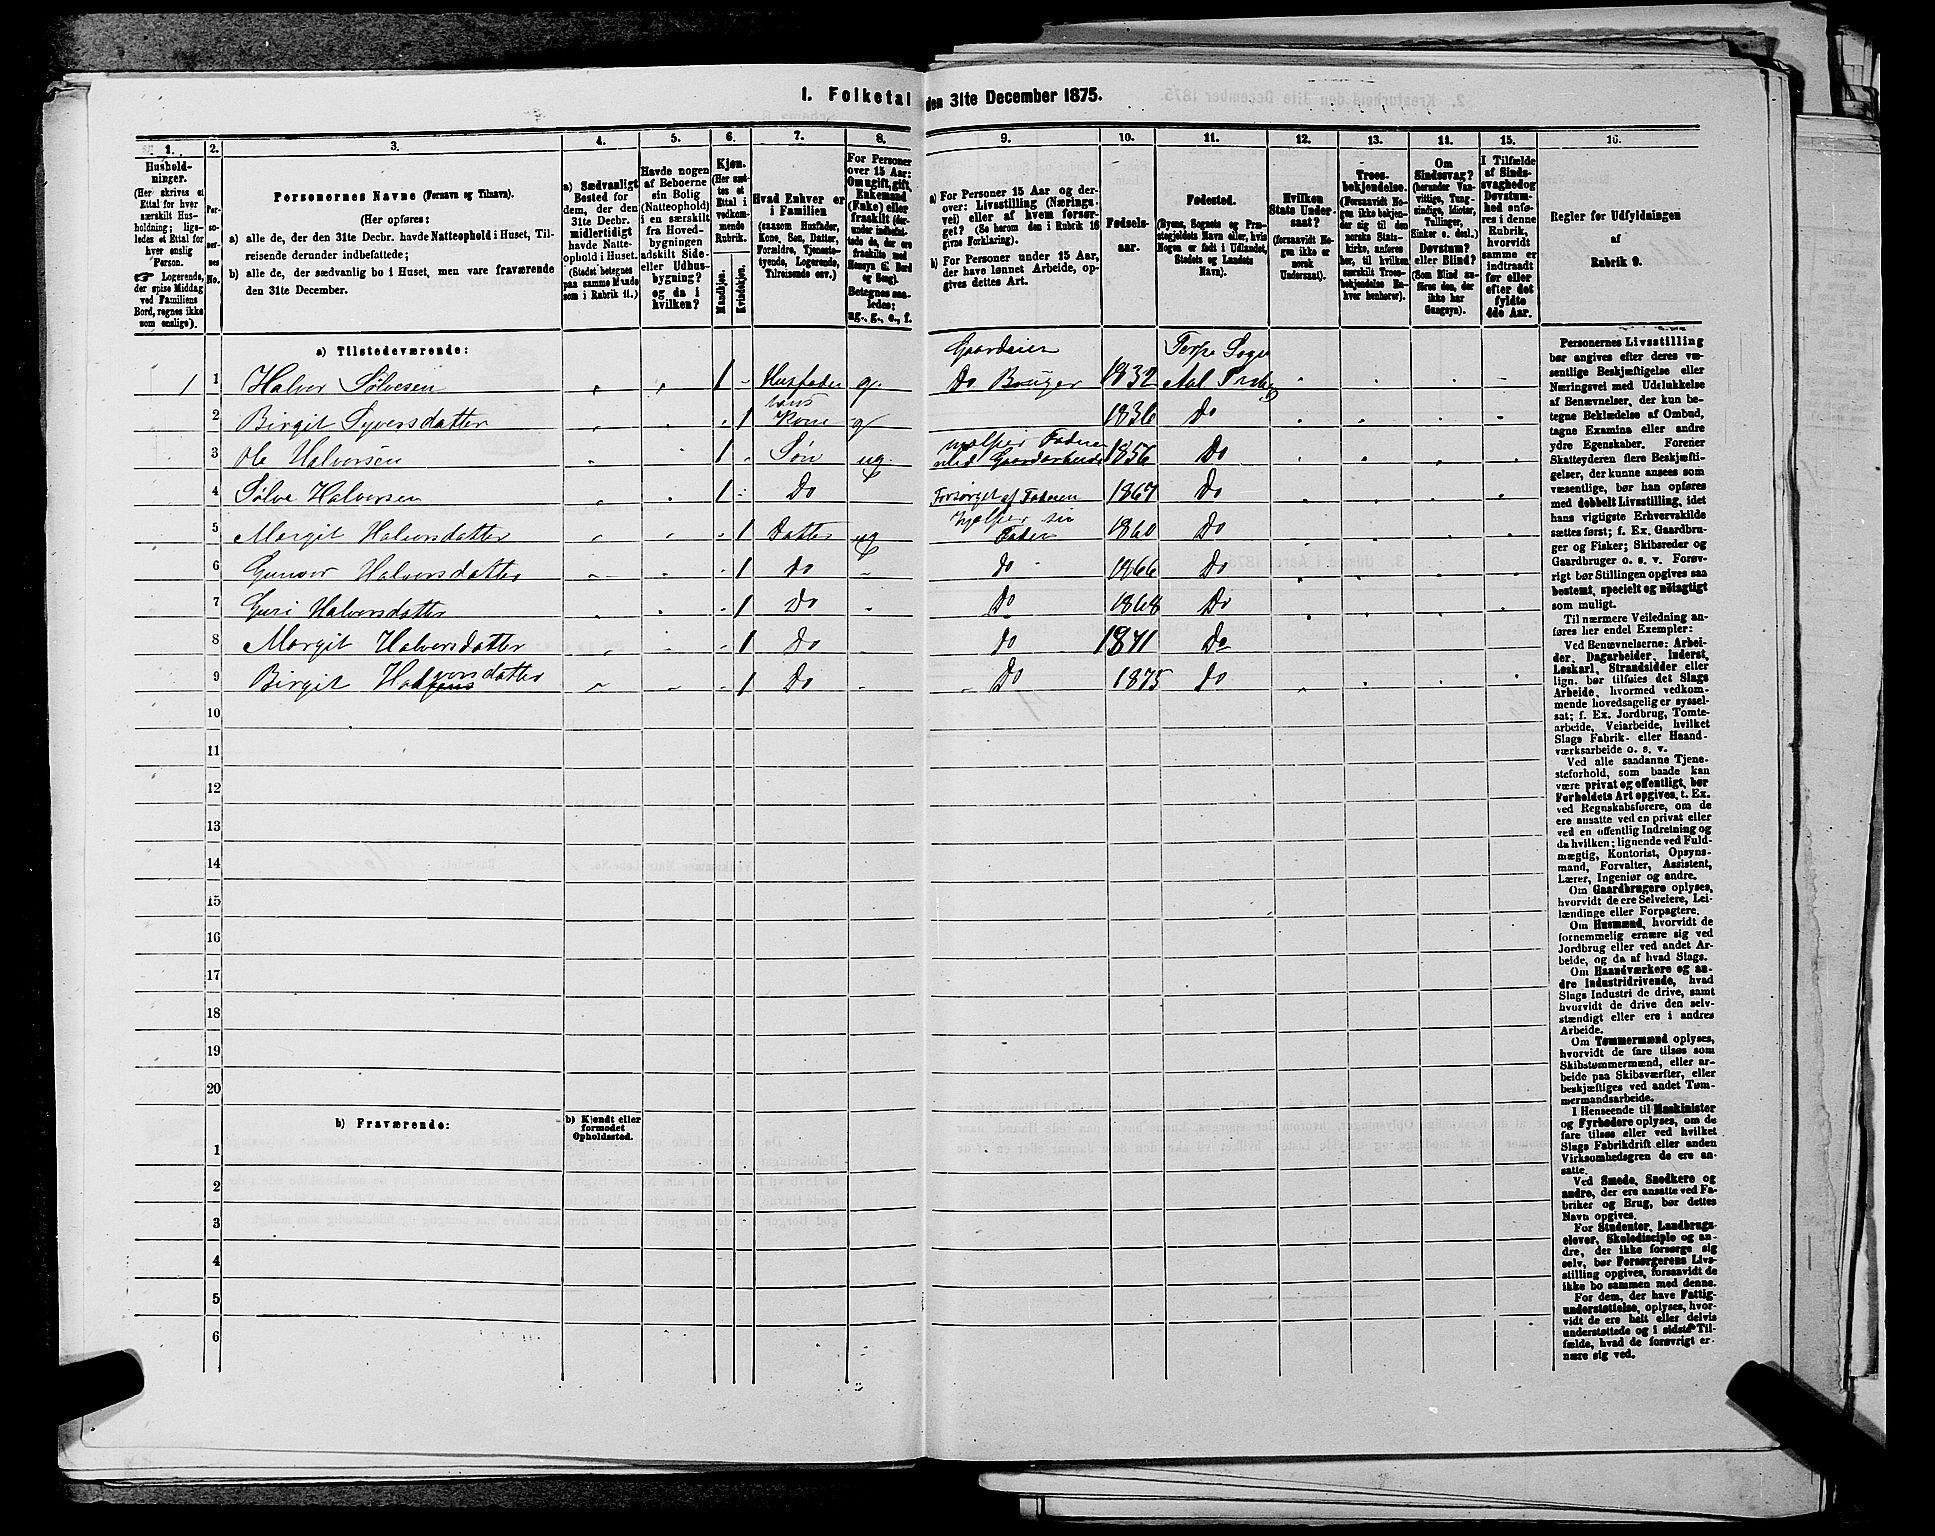 1. Folketal den 31te December 1875.
1. 2. 3. 4. 5. 6. 7. 8. 9. 10. 11. 12. 13. 14. 15. 16.
Hushold-
ninger.
(Her skrives et
Ettal for hver
særskilt Hus-
holdning; lige-
ledes et Ettal for
hver enslig
Person.
☞ Logerende,
der spise Middag
ved Familiens
Bord, regnes ikke
som enslige).
Per-
so-
ner-
nes
No.
Personernes Navne (Fornavn og Tilnavn).
(Her opføres:
a) alle de, der den 31te Decbr. havde Natteophold i Huset, Til-
reisende derunder indbefattede;
b) alle de, der sædvanlig bo i Huset, men vare fraværende
den 31te December.
a) Sædvanligt
Bosted for
dem, der den
31te Decbr.
midlertidigt
havde Natte-
ophold i Huset.
(Stedet betegnes
paa samme Maade
som i Rubrik 11.)
Havde nogen
af Beboerne
sin Bolig
(Natteophold)
i en særskilt
fra Hoved-
bygningen
adskilt Side-
eller Udhus-
bygning?
og da i
hvilken?
Kjøn.
(Her sæt-
tes et
Ettal i
vedkom-
mende
Rubrik.
Mandkjøn.
Kvindekjøn.
Hvad Enhver er
i Familien
(saasom Husfader,
Kone, Søn, Datter,
Forældre, Tjeneste-
tyende, Logerende,
Tilreisende osv.)
For Personer
over 15 Aar:
Om ugift, gift,
Enkemand
(Enke) eller
fraskilt (der-
under indbefat-
tede de, der ere
fraskilte med
Hensyn til Bord
og Seng).
Betegnes saa-
ledes:
ug., g., e., f.
a) For Personer 15 Aar og der-
over: Livsstilling (Nærings-
vei) eller af hvem forsør-
get? (Se herom den i Rubrik 16
givne Forklaring).
b) For Personer under 15 Aar,
der have lønnet Arbeide, op-
gives dettes Art.
Fødsels-
aar.
Fødested.
(Byens, Sognets og Præ-
stegjeldets Navn eller, hvis
Nogen er født i Udlandet,
Stedets og Landets
Navn).
Hvilken
Stats Under-
saat?
(forsaavidt No-
gen ikke er
norsk
Undersaat).
Troes-
bekjendelse.
(Forsaavidt No-
gen ikke bekjen-
der sig til den
norske Stats-
kirke, anføres
her, til hvilken
særskilt Troes-
bekjendelse En-
hver henhører).
Om
Sindssvag?
(herunder Van-
vittige, Tung-
sindige, Idioter,
Tullinger,
Sinker o. desl.)
Døvstum?
eller Blind?
(Som Blind an-
føres den, der
ikke har
Gangsyn).
I Tilfælde
af Sinds-
svaghed og
Døvstum-
hed anfø-
res i denne
Rubrik,
hvorvidt
samme er
indtraadt
før eller
efter det
fyldte
4de Aar.
Regler for Udfyldningen
af
Rubrik 9.
a) Tilstedeværende:
1 1 Halver Sølvesen 1 Husfader g. Gaardeier Do Bruger 1832 Torpe Sogn Aal
2 Birgit Syversdatter 1 hans Kone g 1836 Do
3 Ole Halversen 1 Søn ug. hjælper Faderen med Gaardarbeide 1856 Do
4 Sølve Halversen 1 Do Forsørget af Faderen 1867 Do
5 Margit Halversdatter 1 Datter ug Hjelper sin Fader 1860 Do
6 Gunvor Halversdatter 1 Do Do 1866 Do
7 Guri Halversdatter 1 Do Do 1868 Do
8 Margit Halversdatter 1 Do Do 1871 Do
9 Birgit Halversdatter 1 Do Do 1875 Do
10
11
12
13
14
15
16
17
18
19
20
b) Fraværende:
b) Kjendt eller
formodet
Opholdssted.
1
2
3
4
5
6
Personernes Livsstilling
bør angives efter deres væ-
sentlige Beskjæftigelse eller
Næringsvei med Udelukkelse
af Benævnelser, der kun be-
tegne Beklædelse af Ombud,
tagne Examina eller andre
ydre Egenskaber. Forener
Skatteyderen flere Beskjæfti-
gelser, der kunne ansees som
væsentlige, bør han opføres
med dobbelt Livsstilling, idet
hans vigtigste Erhvervskilde
sættes først; f. Ex. Gaardbru-
ger og Fisker; Skibsreder og
Gaardbruger o. s. v. Forøv-
rigt bør Stillingen opgives saa
bestemt, specielt og nøiagtigt
som muligt.
Til nærmere Veiledning an-
føres her endel Exempler:
Ved Benævnelserne: Arbei-
der, Dagarbeider, Inderst,
Løskarl, Strandsidder eller
lign. bør tilføies det Slags
Arbeide, hvormed vedkom-
mende hovedsagelig er syssel-
sat; f. Ex. Jordbrug, Tomte-
arbeide, Veiarbeide, hvilket
Slags Fabrik- eller Haand-
værksarbeide o. s. v.
Ved alle saadanne Tjene-
steforhold, som baade kan
være privat og offentligt, bør
Forholdets Art opgives, t. Ex.
ved Regnskabsførere, om de
ere ansatte ved en privat eller
ved en offentlig Indretning og
da hvilken; lignende ved Fuld-
mægtig, Kontorist, Opsyns-
mand, Forvalter, Assistent,
Lærer, Ingeniør og andre.
Om Gaardbrugere oplyses,
hvorvidt de ere Selveiere, Lei-
lændinge eller Forpagtere.
Om Husmænd, hvorvidt de
fornemmelig ernære sig ved
Jordbrug eller ved andet Ar-
beide, og da af hvad Slags.
Om Haandværkere og an-
dre Industridrivende, hvad
Slags Industri de drive, samt
hvorvidt de drive den selv-
stændigt eller ere i andres
Arbeide.
Om Tømmermænd oplyses,
hvorvidt de fare tilsøs som
Skibstømmermænd, eller ar-
beide paa Skibsværfter, eller
beskjæftiges ved andet Tøm-
mermandsarbeide.
I Henseende til Maskinister
og Fyrbødere oplyses, om de
fare tilsøs eller ved hvilket
Slags Fabrikdrift eller anden
Virksomhedsgren de ere an-
satte.
Ved Smede, Snedkere og
andre, der ere ansatte ved Fa-
briker og Brug, bør dettes
Navn opgives.
For Studenter, Landbrugs-
elever, Skoledisciple og an-
dre, der ikke forsørge sig
selv, bør Forsørgerens Livs-
stilling opgives, forsaavidt de
ikke bo sammen med denne.
For dem, der have Fattig-
understøttelse, oplyses, hvor-
vidt de ere helt eller delvis
understøttede og i sidste Til-
fælde, hvad de forøvrigt er-
nære sig ved.